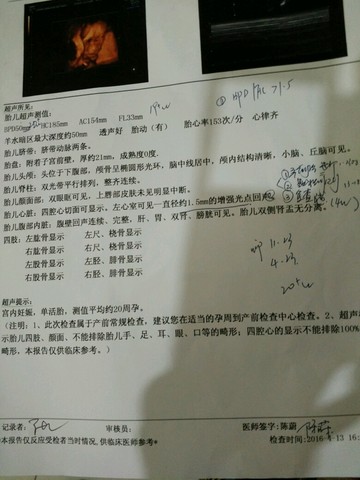 超声所见:
胎儿超声测值:
BPD50mm HC185mm AC154mm FL33mm
羊水暗区最大深度约50mm 透声好 胎动(有) 胎心率153次/分 心律齐
胎儿脐带:脐带动脉两条。
胎盘:附着子宫前壁,厚约21mm,成熟度0度.
胎儿头颅:头位于下腹部,颅骨呈椭圆形光环,脑中线居中,颅内结构清晰,小脑、丘脑可见。
胎儿脊柱:双光带平行排列,整齐连续。
胎儿颜面部:双眼眶可见,上唇部皮肤未见明显中断。
胎儿心脏:四腔心切面可显示。左心室可见一直径约1.5mm的增强光点回声
胎儿腹部内脏:腹壁回声连续、完整,肝、胃、双肾、膀胱可见。胎儿双侧肾盂无分离。
四肢:左肱骨显示 左尺、桡骨显示
右肱骨显示 右尺、桡骨显示
左股骨显示 左胫、腓骨显示
右股骨显示 右胫、腓骨显示
11.23
4.23
20+w
超声提示:
宫内妊娠,单活胎,测值平均约20周孕。
(注明:1、此次检查属于产前常规检查,建议您在适当的孕周到产前检查中心检查。2、超声
示胎儿四肢、颜面、不能排除胎儿手、足、耳、眼、口等的畸形;四腔心的显示不能排除100%
畸形,本报告仅供临床参考。)
记录者: 审核员: 医师签字:陈蔚
本报告仅反应受检者当时情况,供临床医师参考* 检查时间:2016-4-13 16: